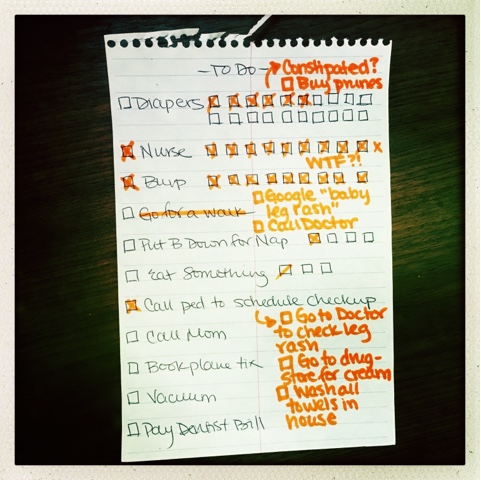 - TO DO -
Constipated?
Buy prunes
Diapers
Nurse
x
WTF?!
Burp
Go for a walk
Google "baby
leg rash"
Call Doctor
Put B Down for Nap
Eat Something
Call ped to schedule checkup
Go to Doctor
to check leg
rash
Call Mom
Book plane tix
Go to drug-
store for cream
Vacuum
Wash all
towels in
house
Pay Dentist Bill